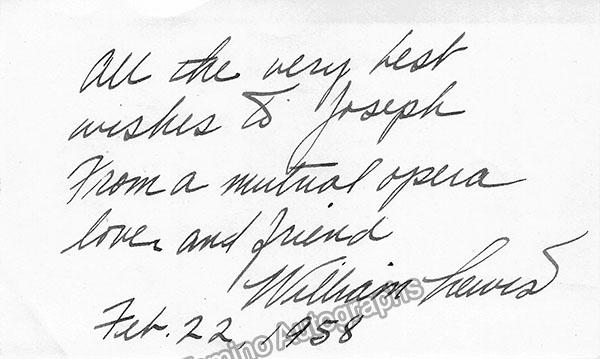 All the very best
wishes to Joseph
From a mutual opera
lover and friend
William Lewis
Feb. 22, 1958
Tamino Autographs